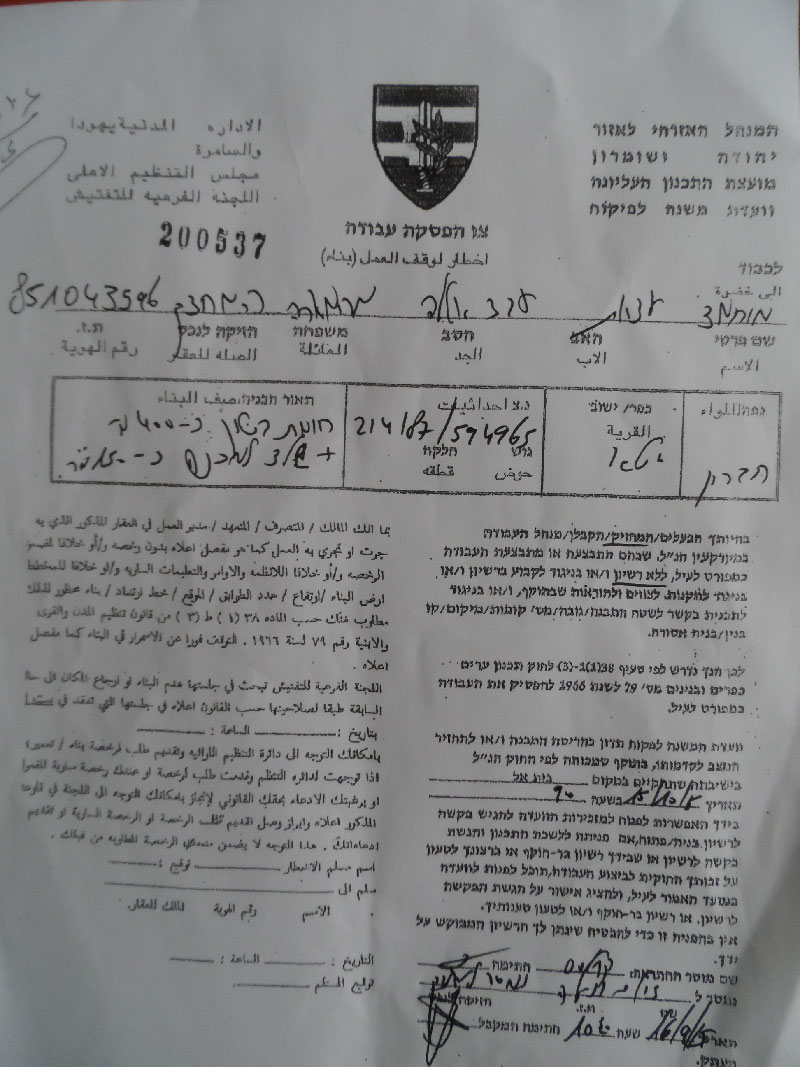 המנהל האזרחי לאזור
יהודה ושומרון
מועצת התכנון העליונה
וועדת משנה לפיקוח
الاداره المدنية يهودا
والسامرة
مجلس التنظيم الاعلى
اللجنة الفرعيه للتفتيش
200537
צו הפסקת עבודה
اخطار لوقف العمل (بناء)
לכבוד
الى حضرة
מוחמד
851043596
שם פרטי האב הסב משפחה הזיקה לנכס ת.ז.
الاسم الاب الجد العائلة الصله للعقار رقم الهوية
נפה/اللواء
חברון
כפר/ישוב
القرية
יטא
נ.צ احداثيات
214187/594965
גוש חלקה
حوض قطعه
תאור הבניה/صيف البناء
בהיותך הבעלים/המחזיק/הקבלן/מנהל העבודה
במקרקעין הנ"ל, שבהם התבצעה או מתבצעת העבודה
כמפורט לעיל, ללא רשיון ו/או בניגוד לקבוע ברשיון ו/או
בניגוד לתקנות, לצווים ולהוראות שבתוקף, ו/או בניגוד
לתכנית בקשר לשטח התבנה/גובה/מס' קומות/מיקום/קו
בנין/בנית אסורה.
לכן הנך נדרש לפי סעיף 38(1)ב-(3) לחוק תכנון ערים
כפרים ובנינים מס' 79 לשנת 1966 להפסיק את העבודה
כמפורט לעיל.
וועדת המשנה לפקוח תדון בהריסת התבנה ו/או להחזיר
המצב לקדמותו, בתוקף סמכותה לפי החוק הנ"ל
בישיבתה שתתקיים במקום בית אל
תאריך בשעה
בידך האפשרות לפנות למזכירות הוועדה להגיש בקשה
לרשיון בניה/פתוח, אם פנית ללשכת התכנון והגשת
בקשה לרשיון או שבידך רשיון בר-תוקף או ברצונך לטעון
על זכותך החוקית לביצוע העבודה, תוכל לפנות לוועדה
במועד האמור לעיל, ולהציג אישור על הגשת הבקשה
לרשיון, או רשיון בר-תוקף ו/או לטעון טענותיך.
אין בהפניה זו כדי להבטיח שינתן לך הרשיון המבוקש על
ידך.
שם מוסר ההתראה: חתימה
נמסר ל
ת.ז.
תאריך 16/9/15 שעה חתימת המקבל
העתק:
بما انك المالك / المتصرف / المتعهد / مدير العمل في العقار المذكور الذي به
جرت او تجري به العمل كما هو مفصل اعلاه بدون رخصه و/أو خلافا لمضمون
الرخصه و/أو خلافا للانظمه والاوامر والتعليمات الساريه و/أو خلافا للمخطط
ارض البناء / ارتفاع / عدد الطوابق / الموقع / خط ارتداد / بناء محظور لذلك
مطلوب منك حسب الماده ٣٨ (١) ط (٣) من قانون تنظيم المدن والقرى
والابنية رقم ٧٩ لسنة ١٩٦٦ . التوقف فورا عن الاستمرار في البناء كما مفصل
اعلاه .
اللجنه الفرعيه للتفتيش تبحث في جلستها هدم البناء او ارجاع المكان الى حالته
السابقة طبقا لصلاحيتها حسب القانون اعلاه في جلستها التي تنعقد في
بتاريخ : الساعة :
بامكانك التوجه الى دائرة التنظيم اللوائيه وتقديم طلب لرخصة بناء / تعمير
اذا توجهت لدائره التنظيم وقدمت طلب لرخصة او عندك رخصة سارية المفعول
او برغبتك الادعاء بحقك القانوني لإنجاز بامكانك التوجه الى اللجنة في الموعد
المذكور اعلاه وابراز وصل تقديم طلب الرخصة او الرخصة السارية او تقديم
ادعاءاتك . هذا التوجه لا يضمن منحك الرخصة المطلوبه من قبلك .
اسم مسلم الاخطار توقيع :
سلم الى
الاسم رقم الهوية المالك للعقار.
التاريخ : الساعة :
توقيع المستلم